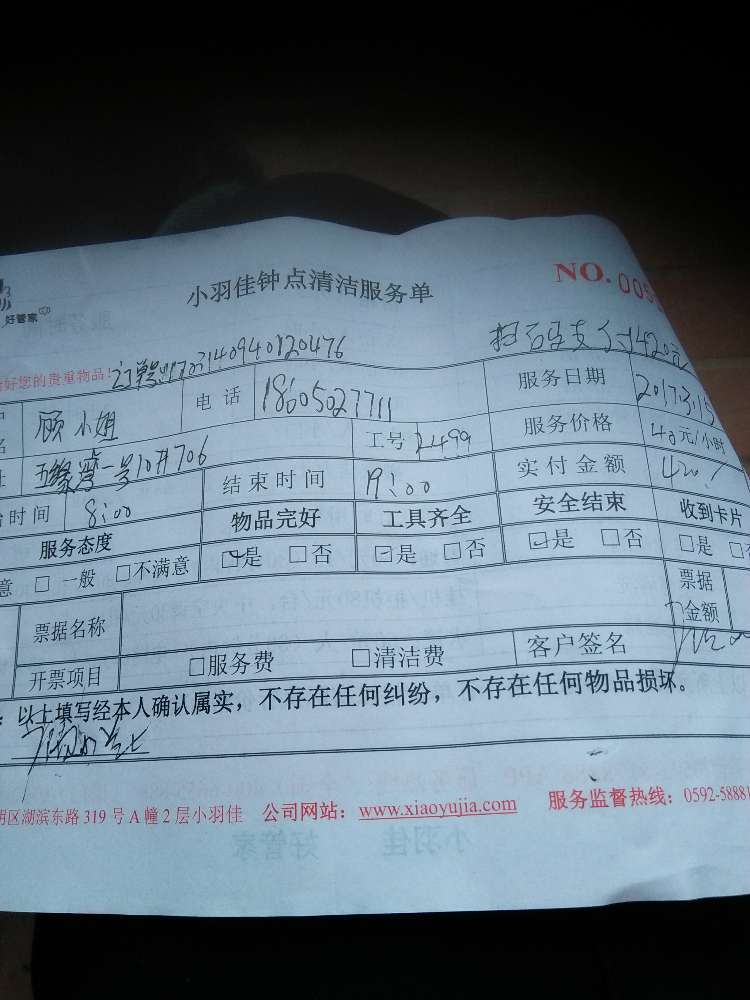 好管家
小羽佳钟点清洁服务单
NO. 005
好您的贵重物品!
扫码支付420元
名 顾小姐 电话 18605027711 服务日期 2017.3.15
址 五缘湾一号10#706 工号 2499 服务价格 40元/小时
时间 8:00 结束时间 19:00 实付金额 420
服务态度 物品完好 工具齐全 安全结束 收到卡片
意 □ 一般 □不满意 ☑是 □否 ☑是 □否 ☑是 □否 □是 □
票据名称 票据金额
开票项目 □服务费 □清洁费 客户签名
: 以上填写经本人确认属实，不存在任何纠纷，不存在任何物品损坏。
明区湖滨东路 319 号 A 幢 2 层小羽佳 公司网站：www.xiaoyujia.com 服务监督热线：0592-58881
小羽佳 好管家